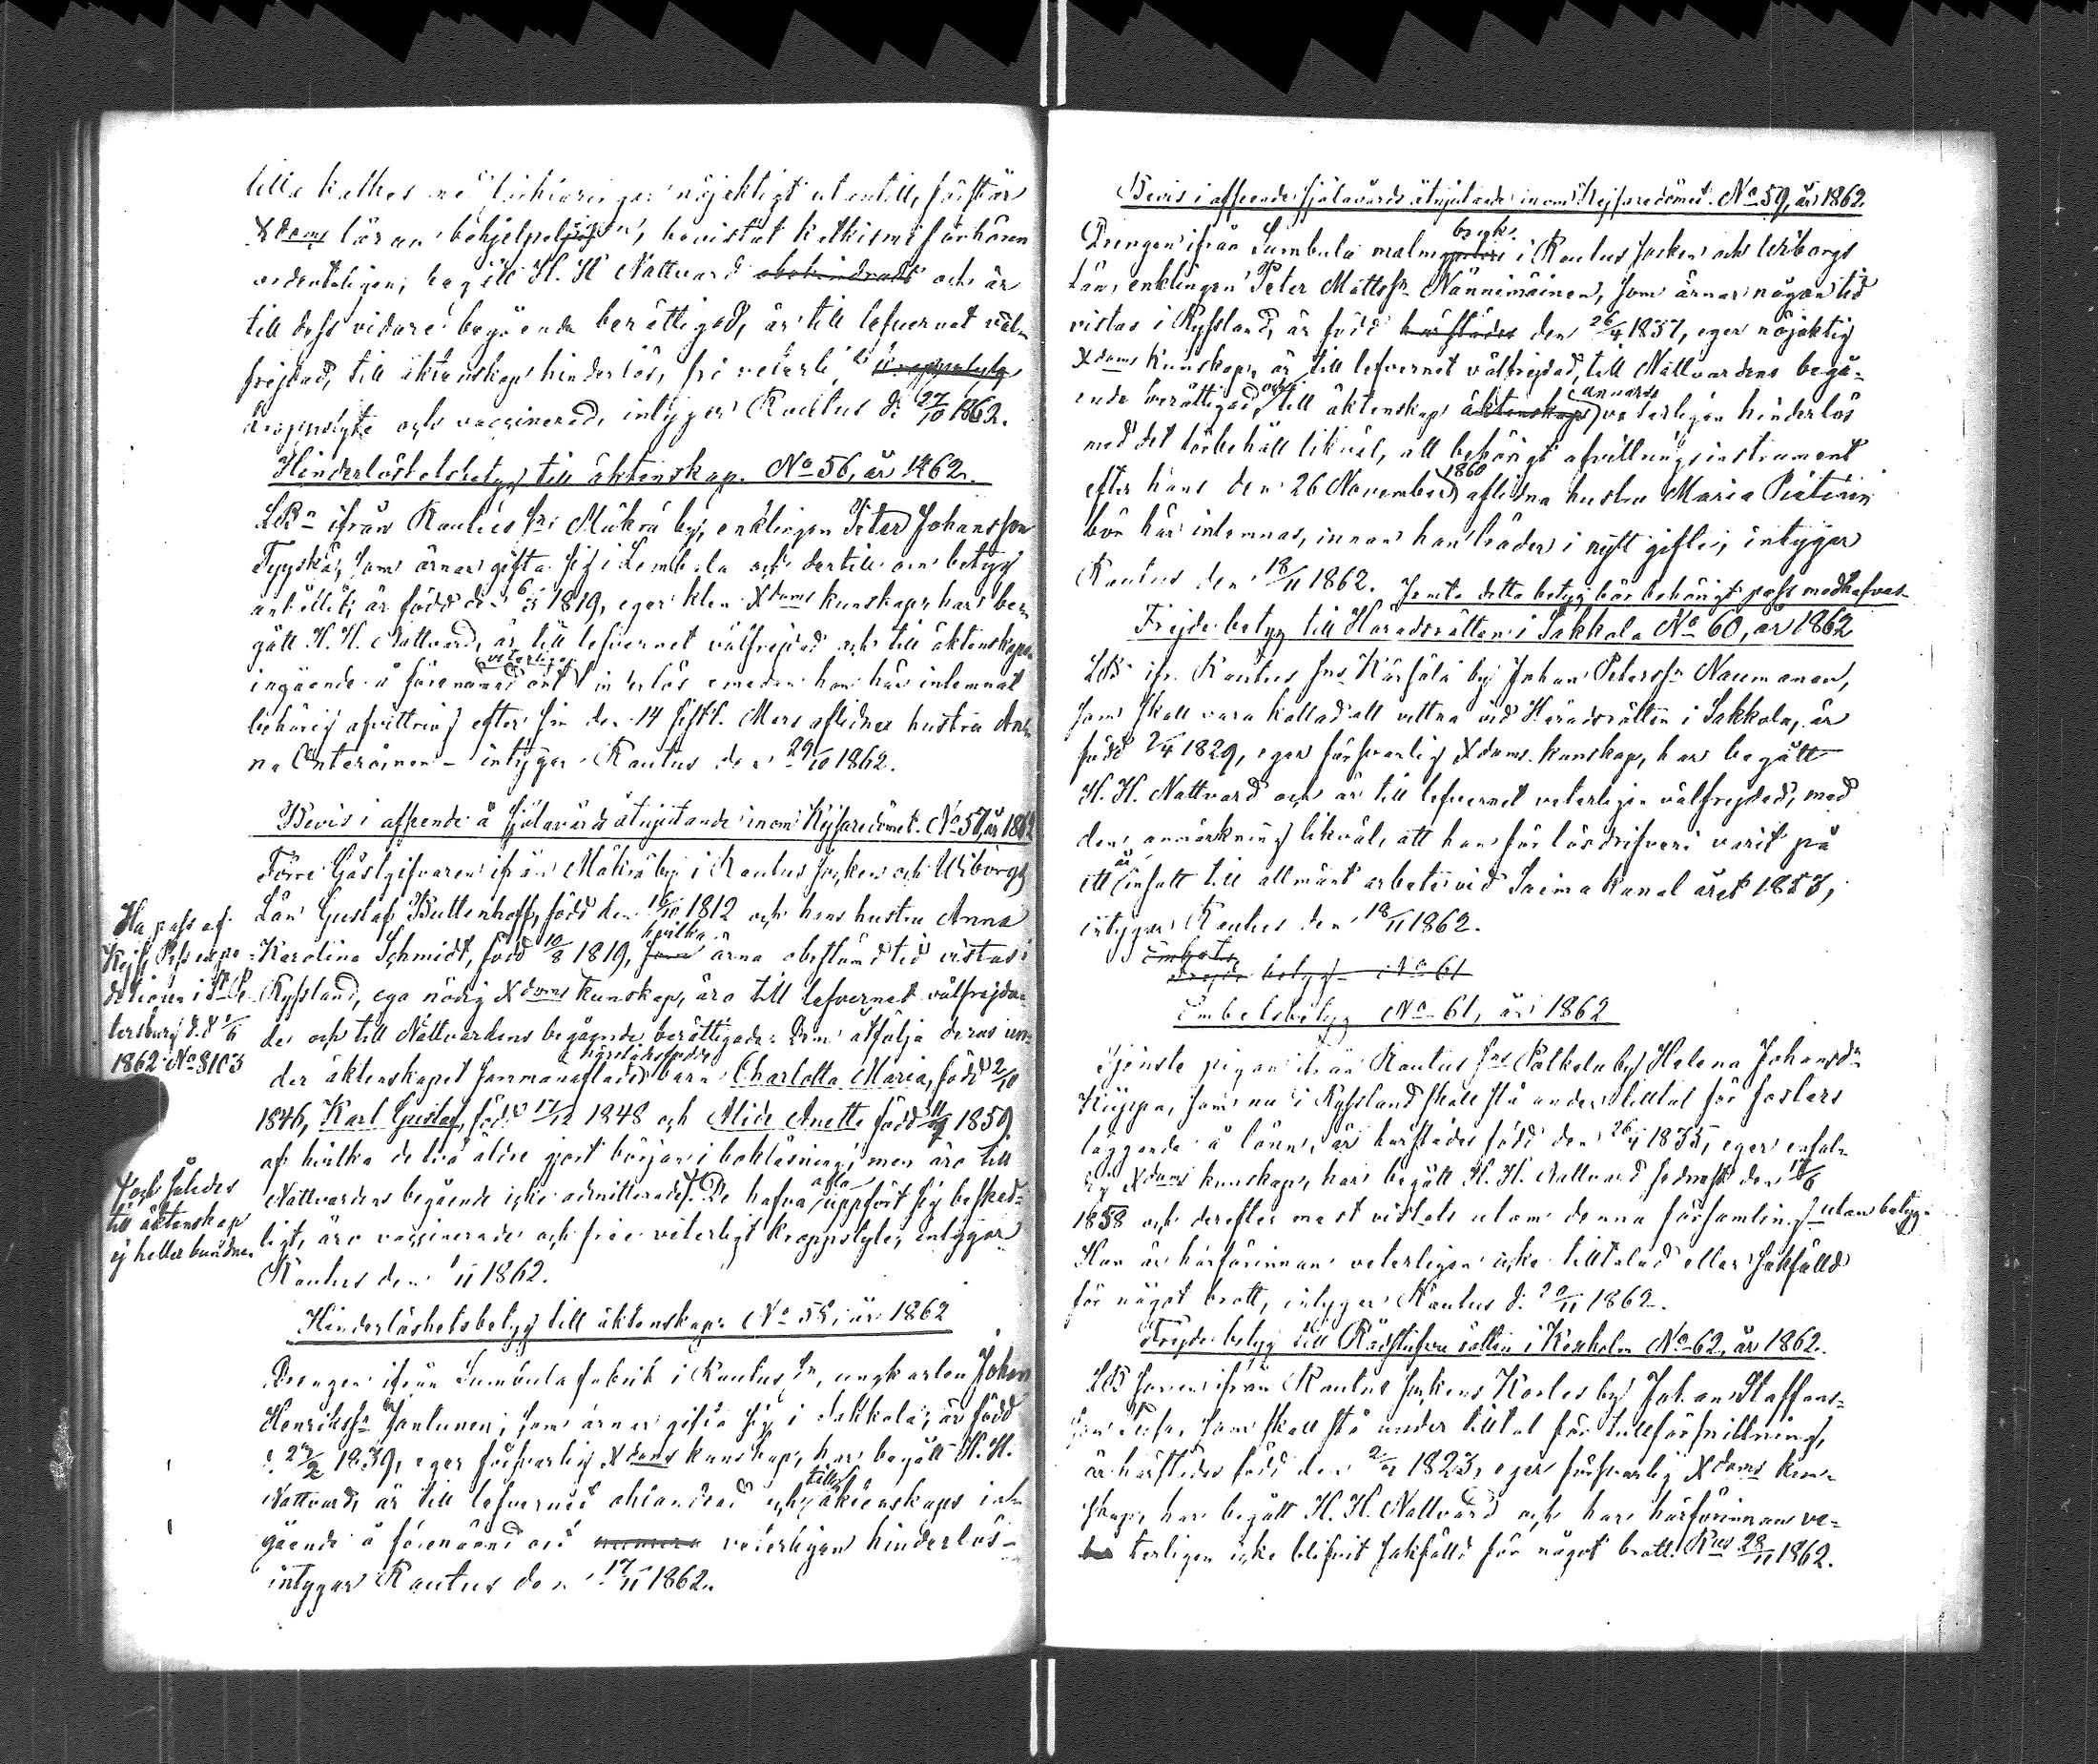 lilla kathes med förklaringar nöjaktigt utantill, förstår
Xdoms läran behjelpeligen, bevistat katkismi förhören
ordenteligen, begått H. H. Nattvard och är
till dess vidare begående berättigad, är till lefvernet väl-
frejdad, till äktenskap hinderlös, fri veterli
och vaccinerad, intygar Rautus d. 27/10 1862.
Hinderlöshetsbetyg till äktenskap. No 56, år 1862.
LBn ifrån Rautus sns Mäkrä by, enklingen Peter Johansson
Tyyskä, som ärnar gifta sig i Lembala och dertill om betyg
anhållit, är född den 6/5 1819, eger klen Xdoms kunskap, har be-
gått H. H. Nattvard, är till lefvernet välfrejdad och till äktenskaps
ingående å förenämnd ort (veterligen) hinderlös emedan han här inlemnat
behörig afvittring efter sin den 14 sistl. Mars aflidna hustru An-
na Onteroinen – intygar Rautus den 29/10 1862.
Bevis i afseende å själavårds åtnjutande inom Kejsaredömet. No 57, år 1862
Förre Gästgifvaren ifrån Mäkrä by i Rautus socken och Wiborgs
Län Gustaf Buttenhoff, född den 16/10 1812 och hans hustru Anna
Karolina Schmidt, född 10/8 1819, hvilka ärna obestämd tid vistas i
Ryssland, ega nödig Xdoms kunskap, äro till lefvernet välfrejda-
de och till Nattvardens begående berättigade. Dem åtfölja deras un-
der äktenskapet sammanaflade härstädes födde barn Charlotta Maria, född 2/10
1846, Karl Gustaf, född 17/12 1848 och Alide Anette född 11 1850
af hvilka de två äldre gjort början i bokläsning, men äro till
Nattvardens begående icke admitterade. De hafva uppfört sig besked-
ligt, äro vaccinerade och frie veterligt kroppslyte, intygar
Rautus den 1/11 1862.
Ha pass af
Kejs. Pass expe-
ditionen i St Pe-
tersburg d.d. 1/6
1862 No 8103
och således
till äktenskap
ej heller bundne.
Hinderlöshetsbetyg till äktenskap. No 58, år 1862
Drengen ifrån Sumbula fabrik i Rautus sn, ungkarlen Johan
Henrikssn Jantunen, som ärnar gifta sig i Sakkola, är född
d. 2 1839, eger försvarlig Xdoms kunskap, har begått H. H.
Nattvard, är till lefvernet oklandrad och till äktenskaps in-
gående å förenämnd ort numera veterligen hinderlös –
intygar Rautus den 17/11 1862.
Bevis i afseende själavårds åtnjutande inom Kejsaredömet. No 59, år 1862.
Drengen ifrån Sumbula malm bruk i Rautus socken och Wiborgs
Län, enklingen Peter Mattssn Nännimäinen, som ärnar någon tid
vistas i Ryssland, är född härstädes den 26/4 1837, eger nöjaktig
Xdoms kunskap, är till lefvernet välfrejdad, till Nattvardens begå-
ende berättigad och till äktenskap äktenskap (annars) veterligen hinderlös
med det förbehåll likväl, att behörigt afvittringsinstrument
efter hans den 26 November 1860 aflidna hustru Maria Pietinin
bör här inlemnas, innan han träder i nytt gifte, intygar
Rautus den 18/11 1862. Jemte detta betyg bör behörigt pass medhafvas.
Frejde betyg till Häradsrätten i Sakkola No 60, år 1862
LBn ifr. Rautus sns Kärsälä by Johan Peterssn Naumanen,
som skall vara kallad att vittna vid Häradsrätten i Sakkola, är
född 2/4 1829, eger försvarlig Xdoms kunskap, har begått
H. H. Nattvard och är till lefvernet veterligen välfrejdad, med
den anmärkning likväl, att han för lösdrifveri varit på
ett år insatt till allmänt arbete vid Saima kanal året 1853,
intygar Rautus den 18/11 1862.
Embets
Frejde betyg No 61
Embetsbetyg No 61, år 1862
Tjenste pigan ifrån Rautus sns Palkela by Helena Johansdr
Kiippa, som nu i Ryssland skall stå under tilltal för fosters
läggande å lönn, är härstädes född den 26 1835, eger enfal-
dig Xdoms kunskap, har begått H. H. Nattvard sednast den 6
1858 och derefter mest vistats utom denna församling utan betyg.
Hon är härförinnan veterligen icke tilltalad eller sakfälld
för något brott, intygar Rautus d. 20/11 1862.
Frejde betyg till Rådstufvu rätten i Kexholm No 62, år 1862.
LB sonen ifrån Rautus sockens Korles by Johan Staffans-
son som skall stå under tilltal för tullförsnillning,
är härstädes född den 1823, eger försvarlig Xdoms kun-
skap, har begått H. H. Nattvard och har härförinnan ve-
terligen icke blifvit sakfälld för något brott. Rus 28/11 1862.